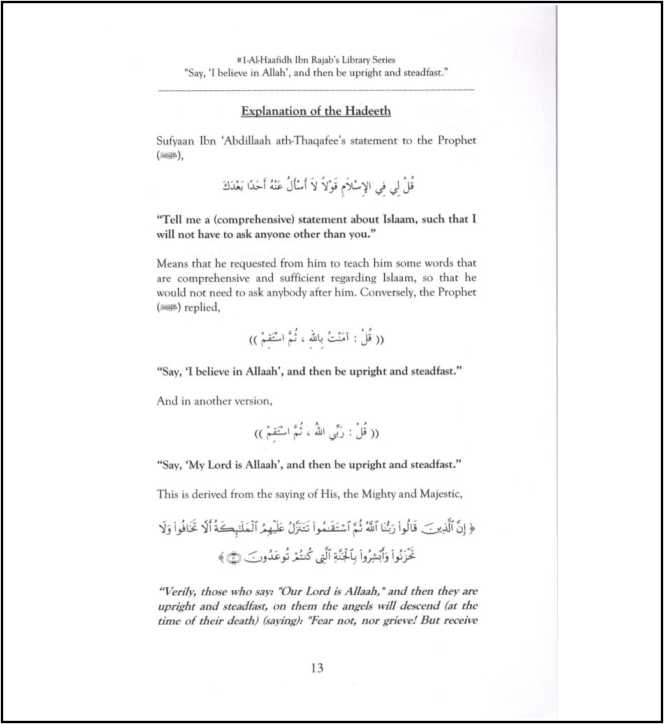 #1-Al-Haafidh Ibn Rajab's Library Series
"Say, 'I believe in Allah', and then be upright and steadfast."
Explanation of the Hadeeth
Sufyaan Ibn 'Abdillaah ath-Thaqafee's statement to the Prophet
(ﷺ),
قُلْ لِي فِي الإِسْلاَمِ قَوْلاً لاَ أَسْأَلُ عَنْهُ أَحَدًا بَعْدَكَ
"Tell me a (comprehensive) statement about Islaam, such that I
will not have to ask anyone other than you."
Means that he requested from him to teach him some words that
are comprehensive and sufficient regarding Islaam, so that he
would not need to ask anybody after him. Conversely, the Prophet
(ﷺ) replied,
(( قُلْ : آمَنْتُ بِاللهِ ، ثُمَّ اسْتَقِمْ ))
"Say, 'I believe in Allaah', and then be upright and steadfast."
And in another version,
(( قُلْ : رَبِّي اللهُ ، ثُمَّ اسْتَقِمْ ))
"Say, 'My Lord is Allaah', and then be upright and steadfast."
This is derived from the saying of His, the Mighty and Majestic,
﴿ إِنَّ ٱلَّذِينَ قَالُوا۟ رَبُّنَا ٱللَّهُ ثُمَّ ٱسْتَقَـٰمُوا۟ تَتَنَزَّلُ عَلَيْهِمُ ٱلْمَلَـٰٓئِكَةُ أَلَّا تَخَافُوا۟ وَلَا
تَحْزَنُوا۟ وَأَبْشِرُوا۟ بِٱلْجَنَّةِ ٱلَّتِى كُنتُمْ تُوعَدُونَ ﴾
"Verily, those who say: "Our Lord is Allaah," and then they are
upright and steadfast, on them the angels will descend (at the
time of their death) (saying): "Fear not, nor grieve! But receive
13